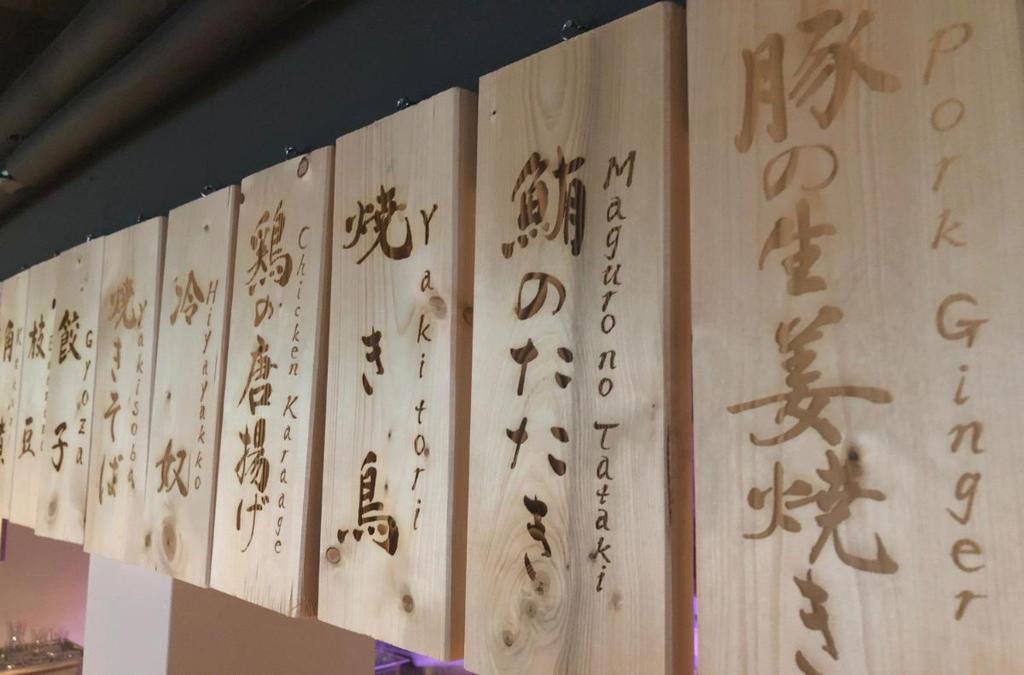 豚の生姜焼き
Pork Ginger
鮪のたたき
Maguro no Tataki
焼き鳥
Yakitori
鶏の唐揚げ
Chicken Karaage
冷奴
Hiyayakko
焼きそば
Yakisoba
餃子
Gyoza
枝豆
角煮